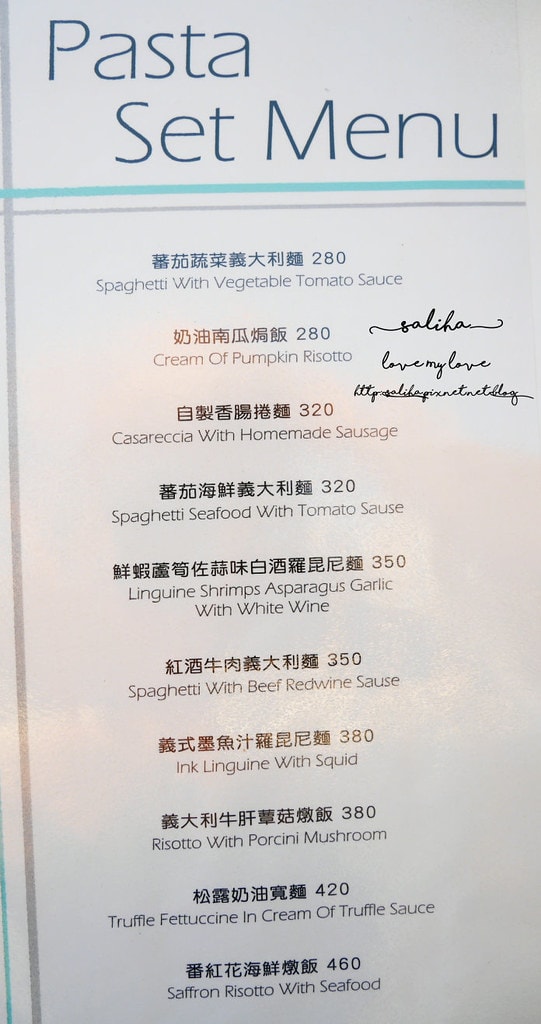 Pasta
Set Menu
蕃茄蔬菜義大利麵 280
Spaghetti With Vegetable Tomato Sauce
奶油南瓜焗飯 280
Cream Of Pumpkin Risotto
saliha
love my love
http:saliha.pixnet.net/blog
自製香腸捲麵 320
Casareccia With Homemade Sausage
蕃茄海鮮義大利麵 320
Spaghetti Seafood With Tomato Sause
鮮蝦蘆筍佐蒜味白酒羅昆尼麵 350
Linguine Shrimps Asparagus Garlic
With White Wine
紅酒牛肉義大利麵 350
Spaghetti With Beef Redwine Sause
義式墨魚汁羅昆尼麵 380
Ink Linguine With Squid
義大利牛肝蕈菇燉飯 380
Risotto With Porcini Mushroom
松露奶油寬麵 420
Truffle Fettuccine In Cream Of Truffle Sauce
番紅花海鮮燉飯 460
Saffron Risotto With Seafood